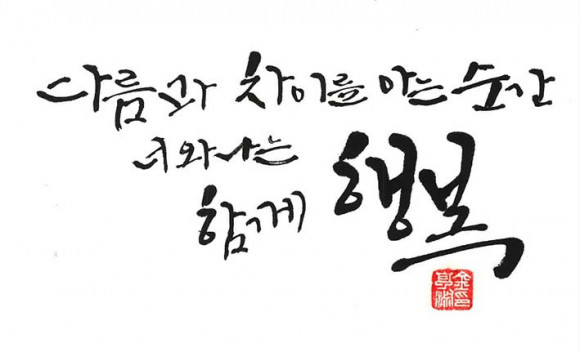 다름과 차이를 아는 순간
너와나는
함께 행복